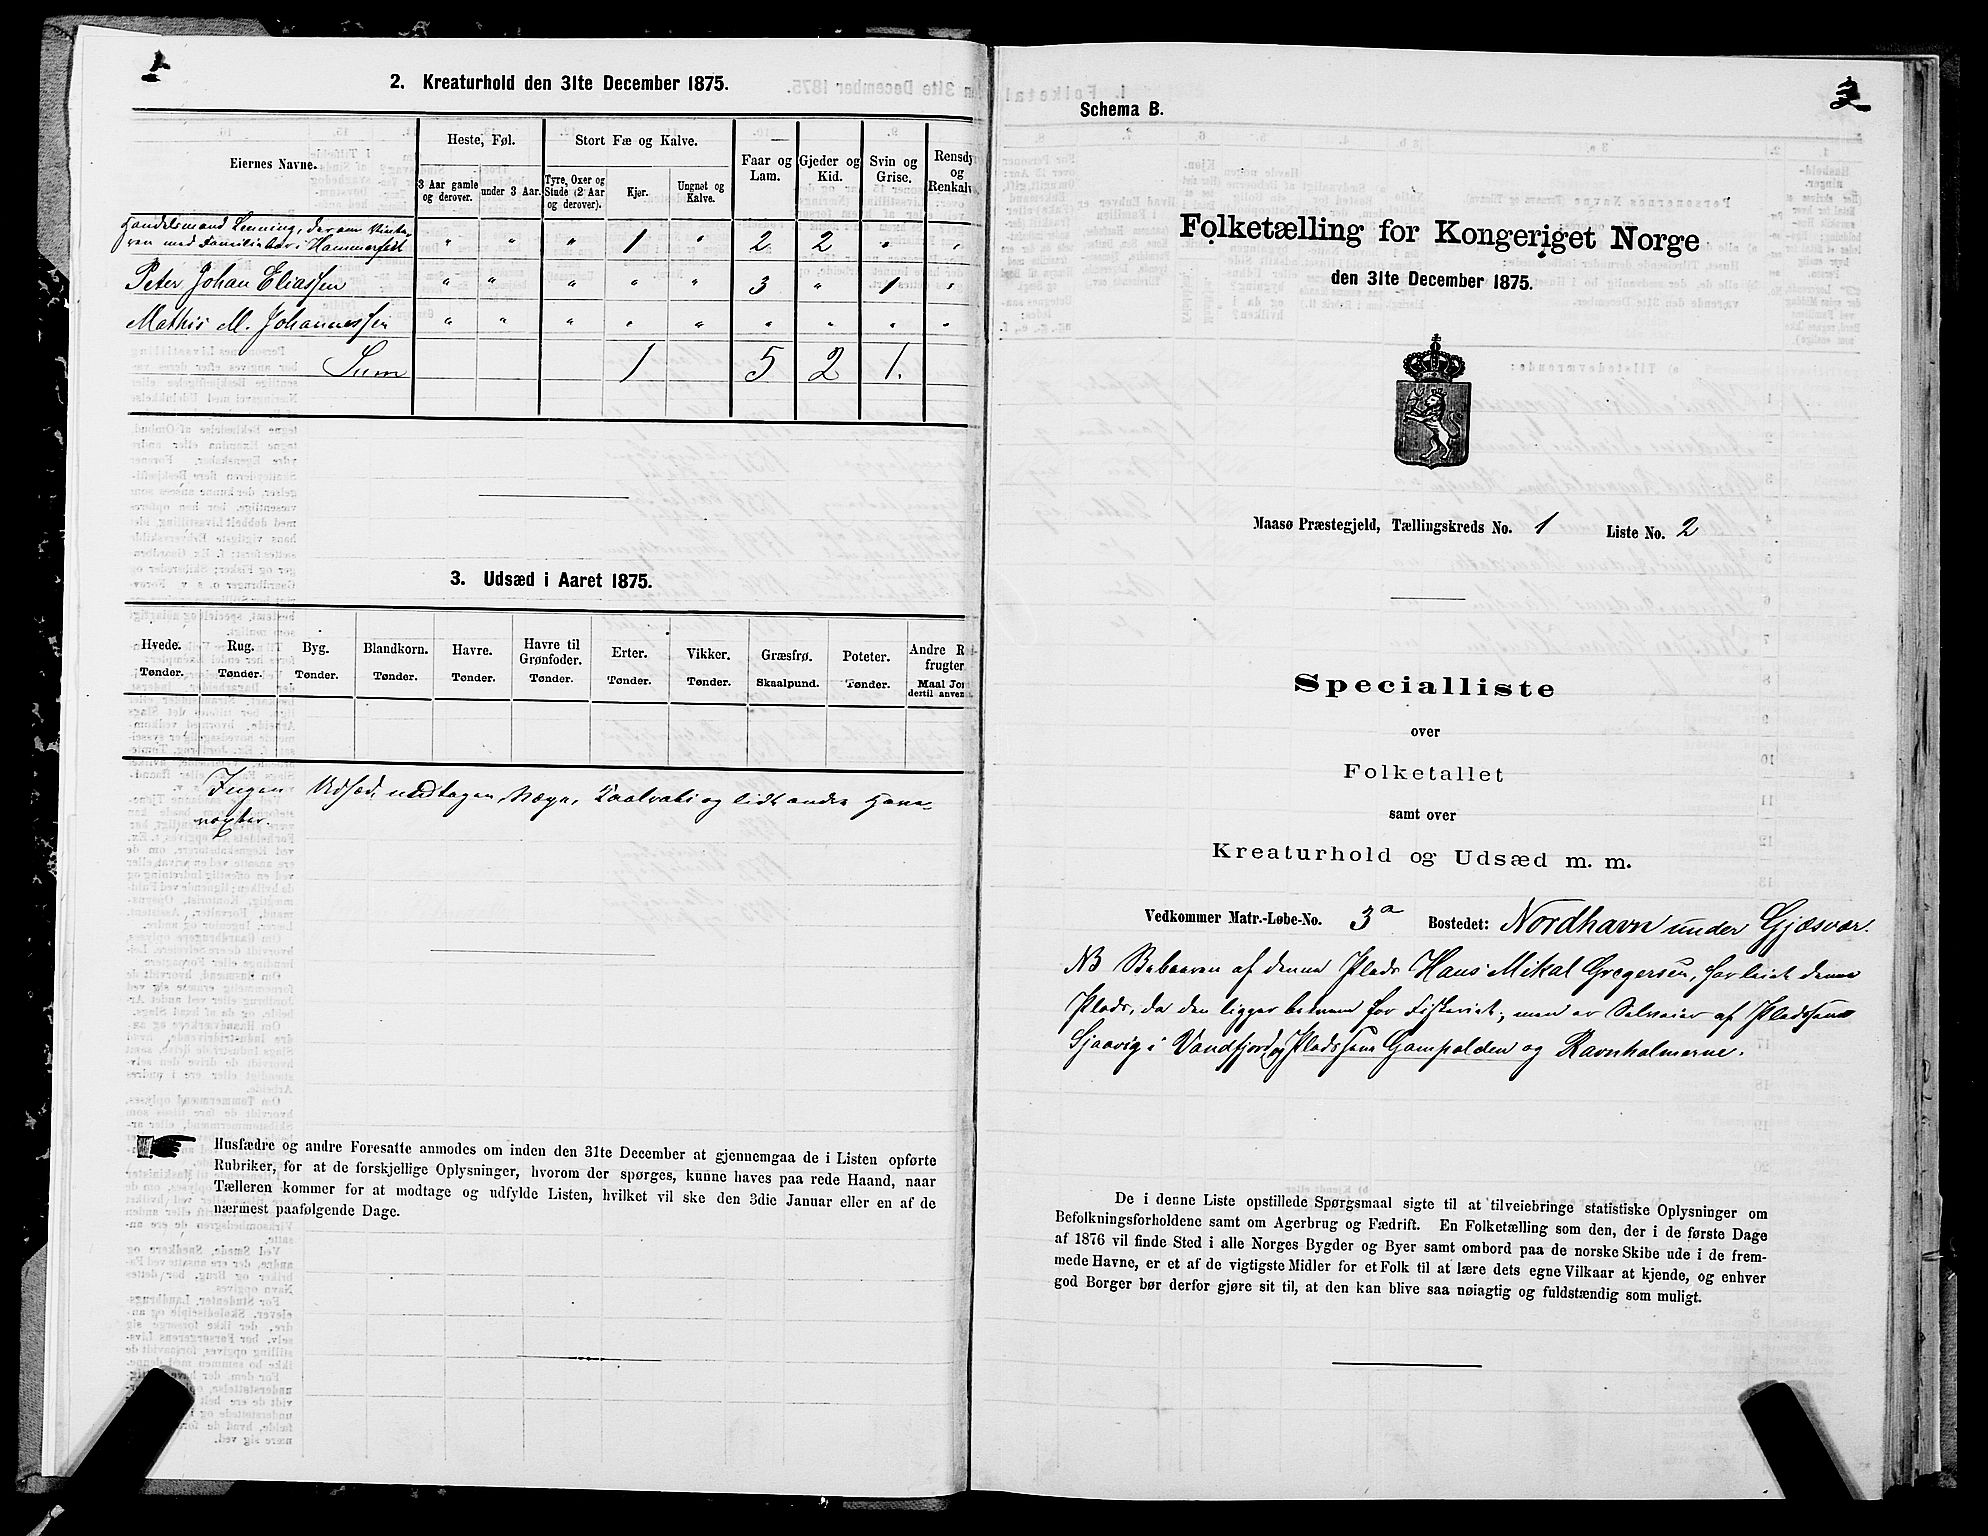 2. Kreaturhold den 31te December 1875.
Eiernes Navne.
Heste, Føl.
Stort Fæ og Kalve.
Faar og Lam.
Gjeder og Kid.
Svin og Grise.
Rensdy og Renkalv
3 Aar gamle og derover.
under 3 Aar.
Tyre, Oxer og Stude (2 Aar og derover).
Kjør.
Ungnøt og Kalve.
Handelsmand Lenning, der om Vinte-
ren med Familie bor i Hammerfest " " " 1 " 2 2 " "
Peter Johan Eliassen " " " " " 3 " 1 "
Mathis M. Johannessen " " " " " " " " "
Sum 1 5 2 1.
3. Udsæd i Aaret 1875.
Hvede. Rug. Byg. Blandkorn. Havre. Havre til Grønfoder. Erter. Vikker. Græsfrø. Poteter. Andre R frugter
Tønder. Tønder. Tønder. Tønder. Tønder. Tønder. Tønder. Tønder. Skaalpund. Tønder. Maal Jor dertil anven
Ingen Udsæd, undtagen Næpe, Kaalrabi og lidt andre Have-
vexter.
Husfædre og andre Foresatte anmodes om inden den 31te December at gjennemgaa de i Listen opførte
Rubriker, for at de forskjellige Oplysninger, hvorom der spørges, kunne haves paa rede Haand, naar
Tælleren kommer for at modtage og udfylde Listen, hvilket vil ske den 3die Januar eller en af de
nærmest paafølgende Dage.
Schema B.
Folketælling for Kongeriget Norge
den 31te December 1875.
Maasø Præstegjeld, Tællingskreds No. 1 Liste No. 2
Specialliste
over
Folketallet
samt over
Kreaturhold og Udsæd m. m.
Vedkommer Matr.-Løbe-No. 3a Bostedet: Nordhavn under Gjæsvær.
NB Beboeren af denne Plads Hans Mikal Gregersen, har leiet denne
Plads, da den ligger bekvem for Fiskeriet, men er Selveier af Pladsene
Sjaavig i Vandfjord, og Pladsene Gampolden og Ravnholmerne.
De i denne Liste opstillede Spørgsmaal sigte til at tilveiebringe statistiske Oplysninger om
Befolkningsforholdene samt om Agerbrug og Fædrift. En Folketælling som den, der i de første Dage
af 1876 vil finde Sted i alle Norges Bygder og Byer samt ombord paa de norske Skibe ude i de frem-
mede Havne, er et af de vigtigste Midler for et Folk til at lære dets egne Vilkaar at kjende, og enhver
god Borger bør derfor gjøre sit til, at den kan blive saa nøiagtig og fuldstændig som muligt.